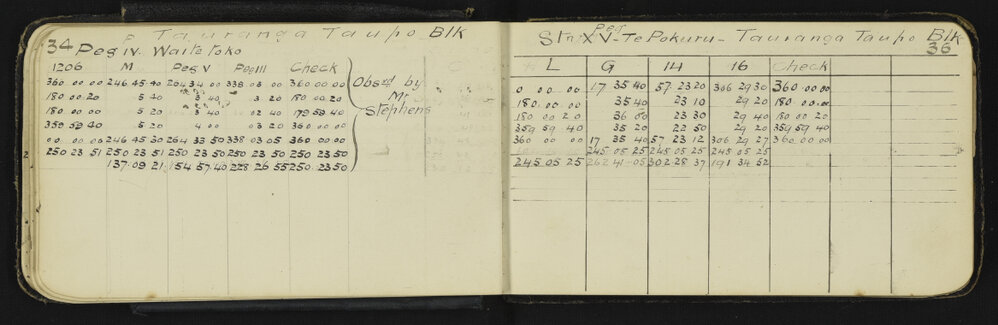 34 Tauranga Taupo Blk
Peg IV. Waitetoko
1206 M Peg V Peg III Check
360 00 00 246 45 40 264 34 00 338 03 00 360 00 00
180 00 20 5 40 3 40 3 20 180 00 20
180 00 00 5 20 3 40 02 40 179 59 40
359 59 40 5 20 4 00 03 20 360 00 00
00 00 00 246 45 30 264 33 50 338 03 05 360 00 00
250 23 51 250 23 51 250 23 50 250 23 50 250 23 50
137 09 21 154 57 40 228 26 55 250 23 50
Obsrd by
Mr
Stephens
Peg
Stn XV - Te Pokuru - Tauranga Taupo Blk
36
L G 14 16 Check
0 00 00 17 35 40 57 23 20 306 29 30 360 00 00
180 00 00 35 40 23 10 29 20 180 00 00
180 00 20 36 00 23 30 29 40 180 00 20
359 59 40 35 20 22 50 29 20 359 59 40
360 00 00 17 35 40 57 23 12 306 29 27 360 00 00
245 05 25 245 05 25 245 05 25
245 05 25 262 41 05 302 28 37 191 34 52